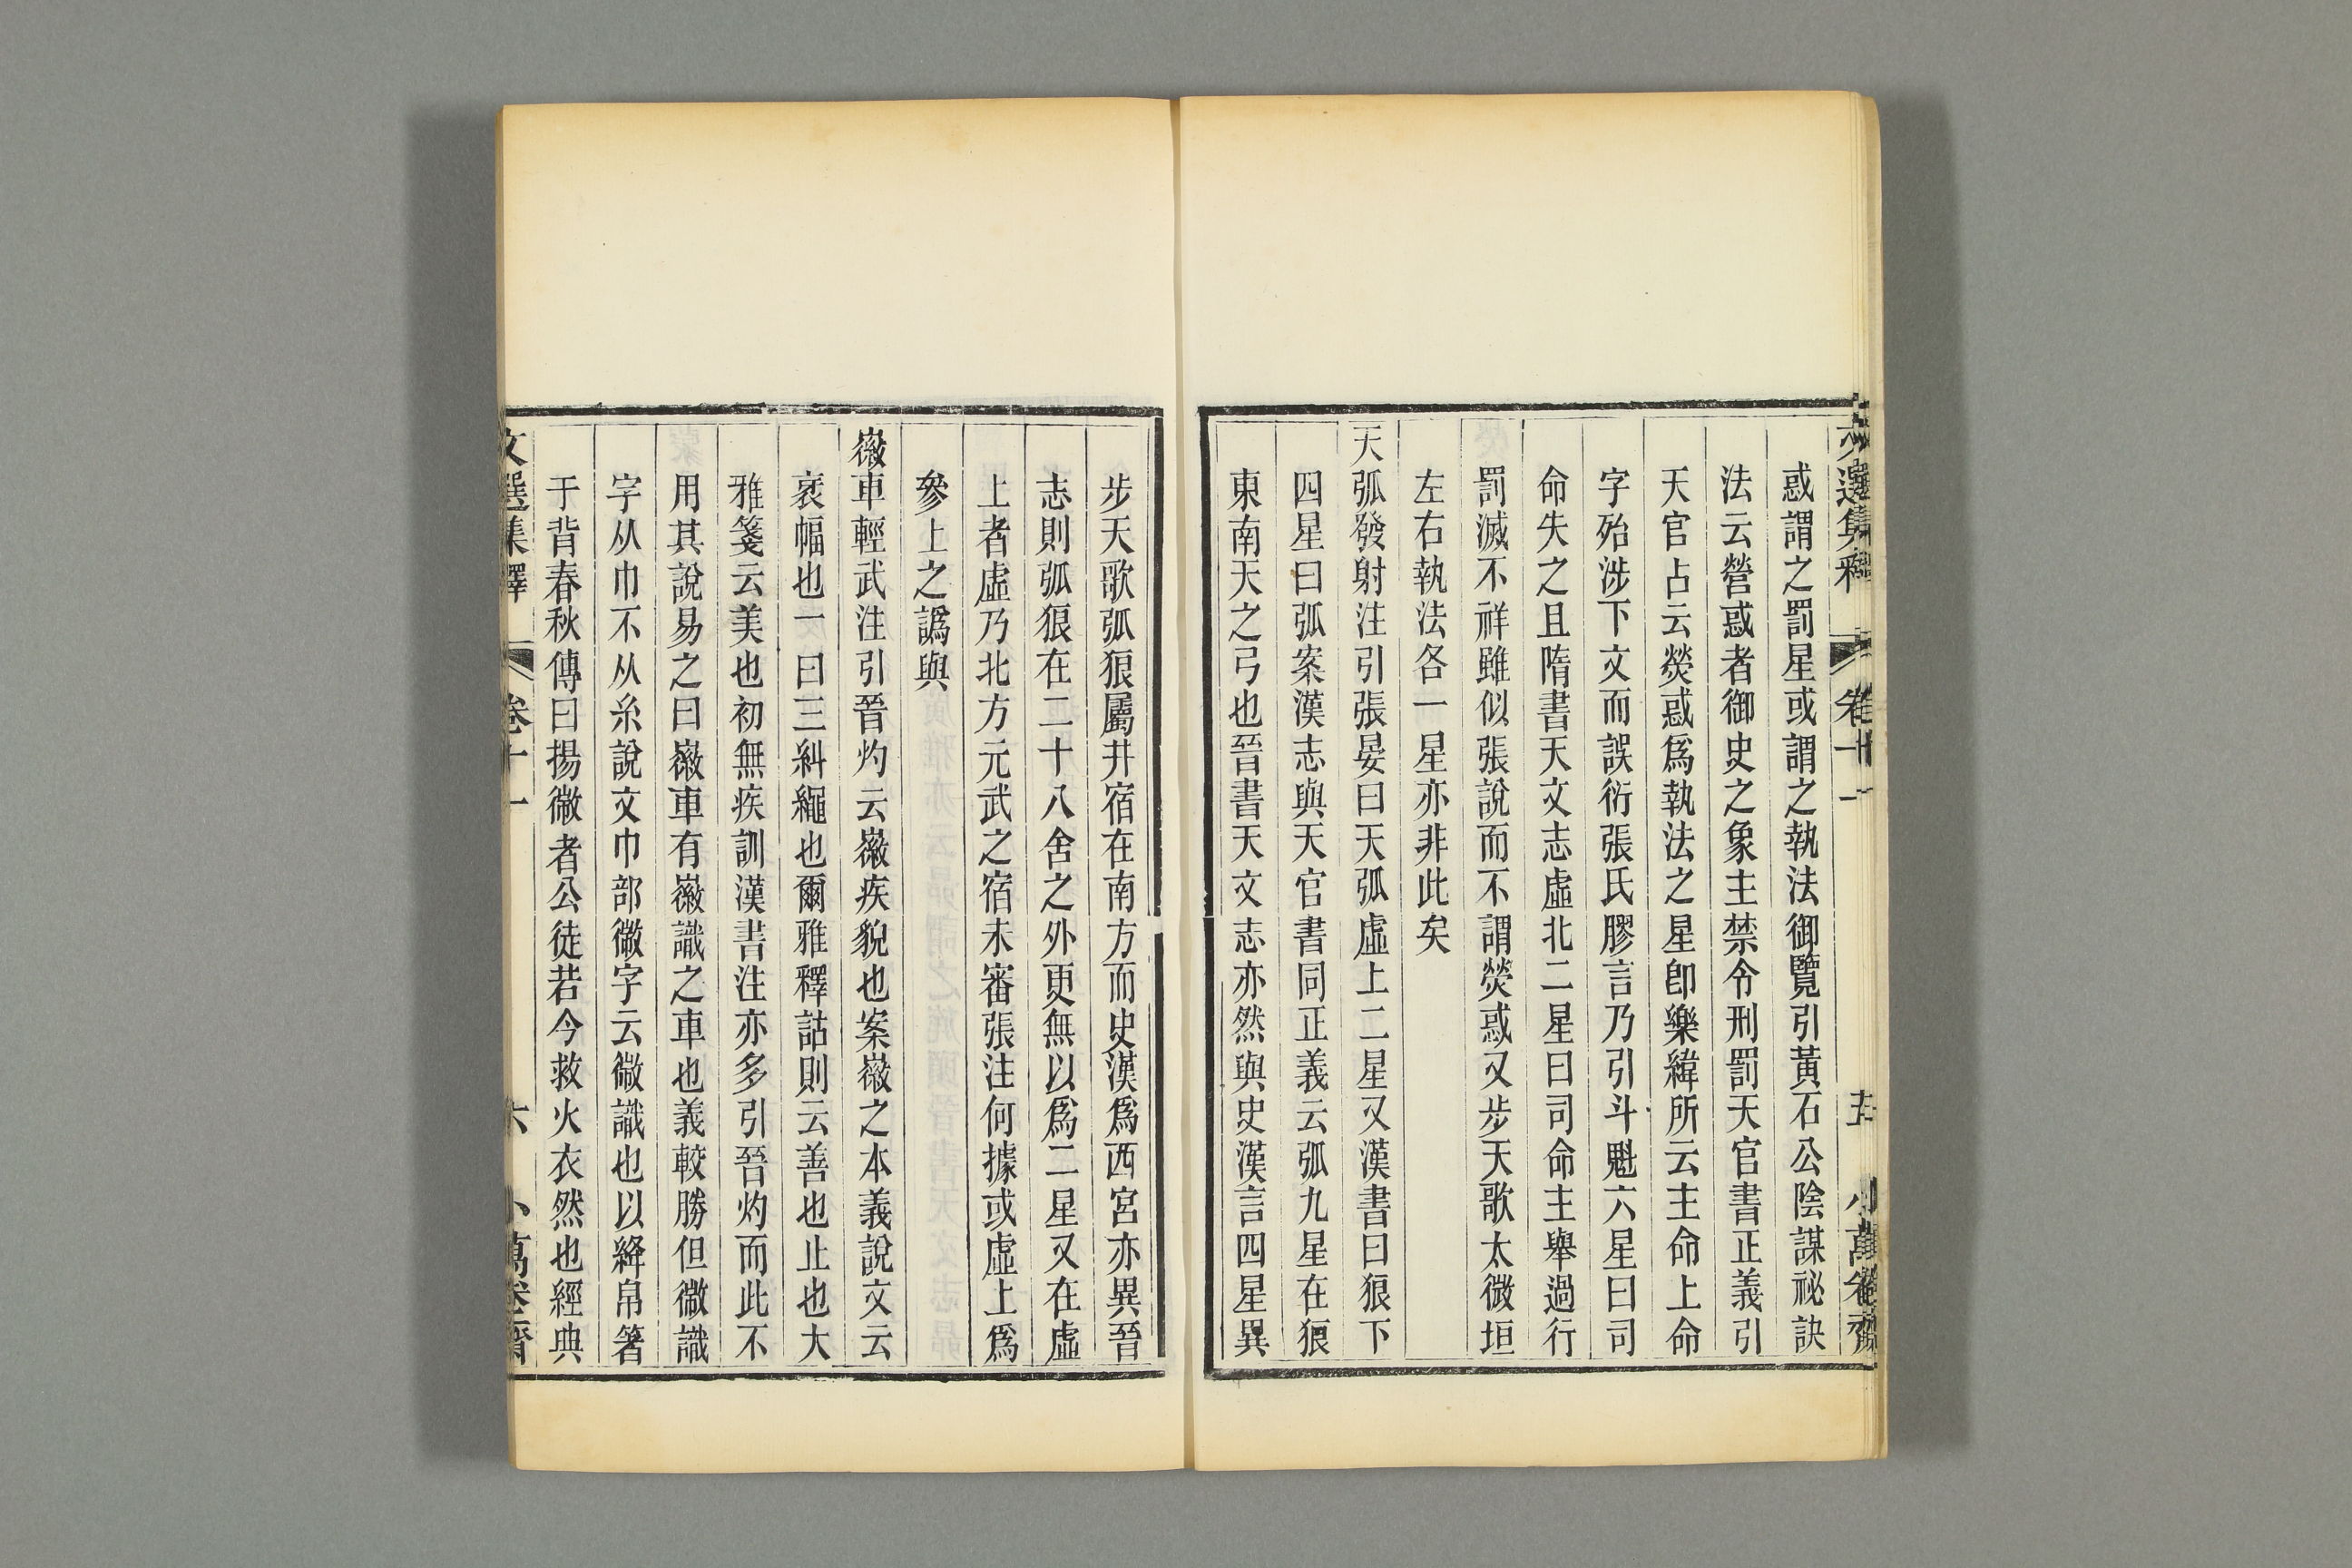 文選集釋 卷十一 五 小萬卷齋
惑謂之罰星或謂之執法御覽引黃石公陰謀祕訣
法云營惑者御史之象主禁令刑罰天官書正義引
天官占云熒惑爲執法之星卽樂緯所云主命上命
字殆涉下文而誤衍張氏膠言乃引斗魁六星曰司
命失之且隋書天文志虛北二星曰司命主舉過行
罰滅不祥雖似張說而不謂熒惑又步天歌太微垣
左右執法各一星亦非此矣
天弧發射注引張晏曰天弧虛上二星又漢書曰狼下
四星曰弧案漢志與天官書同正義云弧九星在狼
東南天之弓也晉書天文志亦然與史漢言四星異
步天歌弧狼屬井宿在南方而史漢爲西宮亦異晉
志則弧狼在二十八舍之外更無以爲二星又在虛
上者虛乃北方元武之宿未審張注何據或虛上爲
參上之譌與
徽車輕武注引晉灼云徽疾貌也案徽之本義說文云
衺幅也一曰三糾繩也爾雅釋詁則云善也止也大
雅箋云美也初無疾訓漢書注亦多引晉灼而此不
用其說易之曰徽車有徽識之車也義較勝但微識
字从巾不从糸說文巾部微字云微識也以絳帛箸
于背春秋傳曰揚微者公徒若今救火衣然也經典
文選集釋 卷十一 六 小萬卷齋